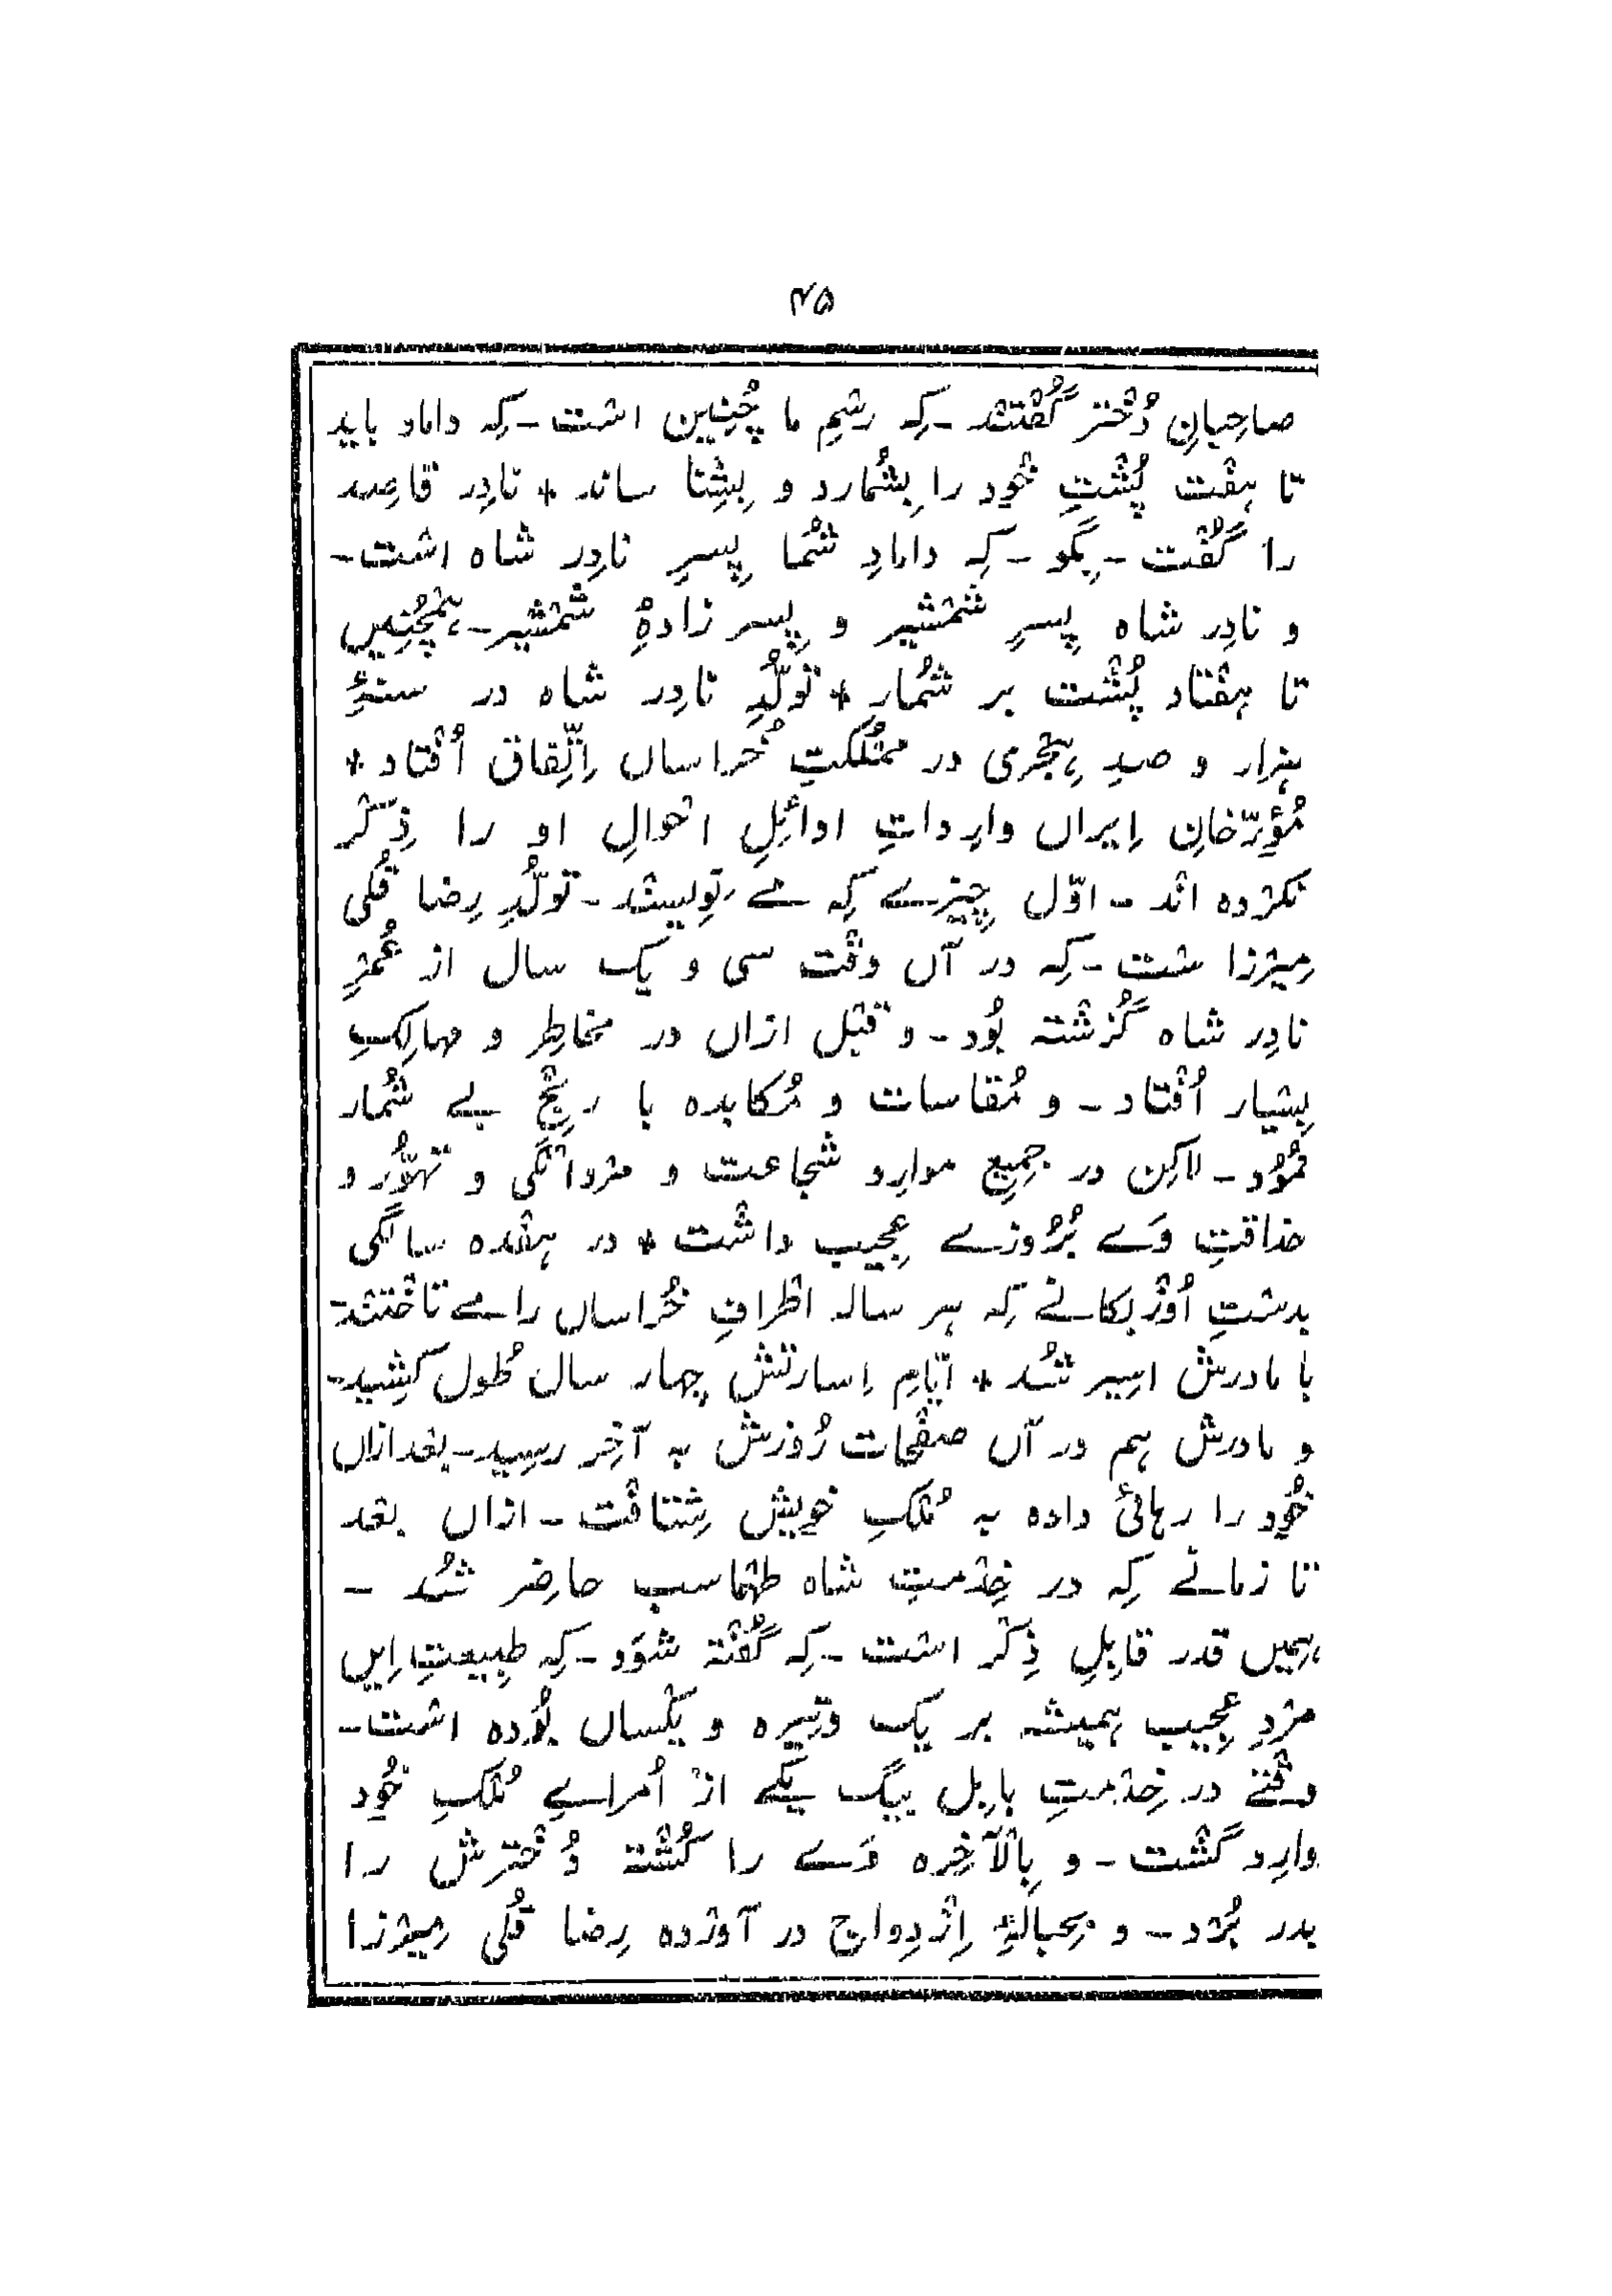 ۴۵
صاحِبانِ دُخْتر گُفْتنْد ـ کِہ رسْمِ ما چُنِیں اسْت ـ کِہ داماد باید
تا ہفْت پُشْتِ خُود را بِشُمارد و بِشِنا ساند * نادِر قاصِد
را گُفْت ـ بِگو ـ کِہ دامادِ شُما پِسرِ نادِر شاہ اسْت ـ
و نادِر شاہ پِسرِ شمْشیر و پِسر زادۂِ شمْشیر ـ ہمْچُنِیں
تا ہفْتاد پُشْت بر شُمار * تَولُّدِ نادِر شاہ در سنۂِ
ہزار و صدِ ہِجْری در ممْلُکتِ خُراساں اِتِّفاق اُفْتاد *
مُؤرِّخانِ اِیراں وارِداتِ اوائِلِ احْوالِ او را ذِکْر
نکرْدہ انْد ـ اوّل چِیزے کِہ مے نوِیسنْد ـ تولُّدِ رِضا قُلی
مِیرْزا ست ـ کِہ در آں وقْت سی و یک سال از عُمْرِ
نادِر شاہ گُزشْتہ بُود ـ و قبْل ازاں در مخاطِر و مہالِکِ
بِسْیار اُفْتاد ـ و مُقاسات و مُکابدہ با رنْجِ بے شُمار
نمُود ـ لاکِن در جمِیعِ موارِد شجاعت و مرْدانْگی و تہوُّر و
حذاقتِ وَے بُرُوزے عجِیب داشْت * در ہفْدہ سالگی
بدسْتِ اُوزْبکانے کِہ ہر سالہ اطْرافِ خُراساں را مے تاخْتنْد ـ
با مادرش اسِیر شُد * ایّامِ اِسارتش چہار سال طُول کشِید ـ
و مادرش ہم در آں صفْحات رُوزش بہ آخِر رسِید ـ بعْدازاں
خُود را رہائیٔ دادہ بہ مُلْکِ خویش شِتافْت ـ ازاں بعْد
تا زمانے کِہ در خِدْمتِ شاہ طہْماسب حاضِر شُد ـ
ہمِیں قدر قابِلِ ذِکْر اسْت ـ کِہ گُفْتہ شوَد ـ کِہ طبِیعتِ اِیں
مرْدِ عجِیب ہمیشہ بر یک وتِیرہ و یکْساں بُودہ اسْت ـ
وقْتے در خِدْمتِ بابِل بیگ یکے ازْ اُمراےِ مُلْکِ خُود
وارِد گشْت ـ و بِالْآخِرہ وَے را کُشْتہ دُخْترش را
بدر بُرْد ـ و بحِبالۂِ اِزْدِواج در آورْدہ رِضا قُلی مِیرْزا